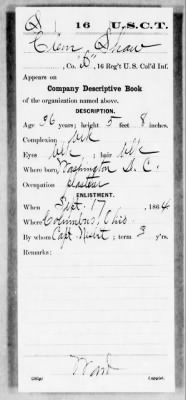 S 16 U.S.C.T.
Clem Shaw
, Co. "D", 16 Reg't U. S. Col'd Inf.
Appears on
Company Descriptive Book
of the organization named above.
DESCRIPTION.
Age 26 years; height 5 feet 8 inches.
Complexion blk
Eyes blk ; hair blk
Where born, Washington D. C.
Occupation plasterer
ENLISTMENT.
When Sept. 17, 1864
Where Columbus, Ohio
By whom Capt. ; term 3 y'rs.
Remarks:
Ward
(383g) Copyist.